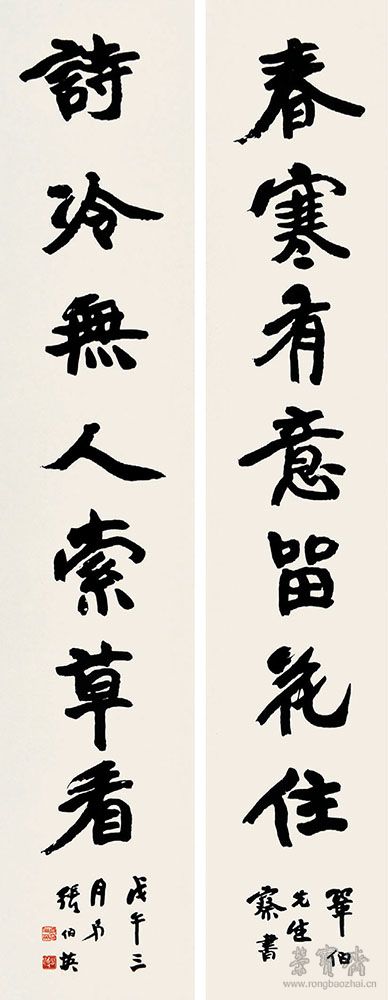 春寒有意留花住
鞏伯
先生
察書
詩冷無人索草看
戊午三
月弟
張伯英
榮寶齋
www.rongbaozhai.cn